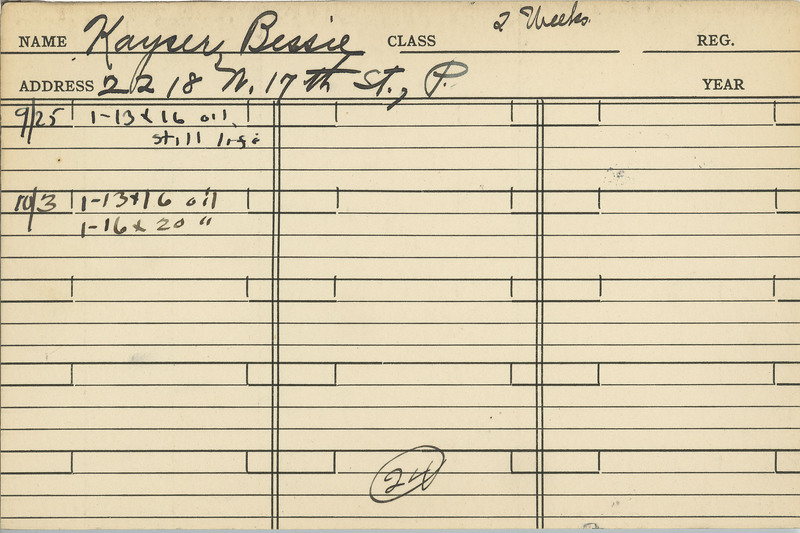 2 Weeks.
NAME Kayser, Bessie CLASS REG.
ADDRESS 2218 N. 17th St., P. YEAR
9/25 1-13x16 oil
still
10/3 1-13x16 oil
1-16x20 "
24